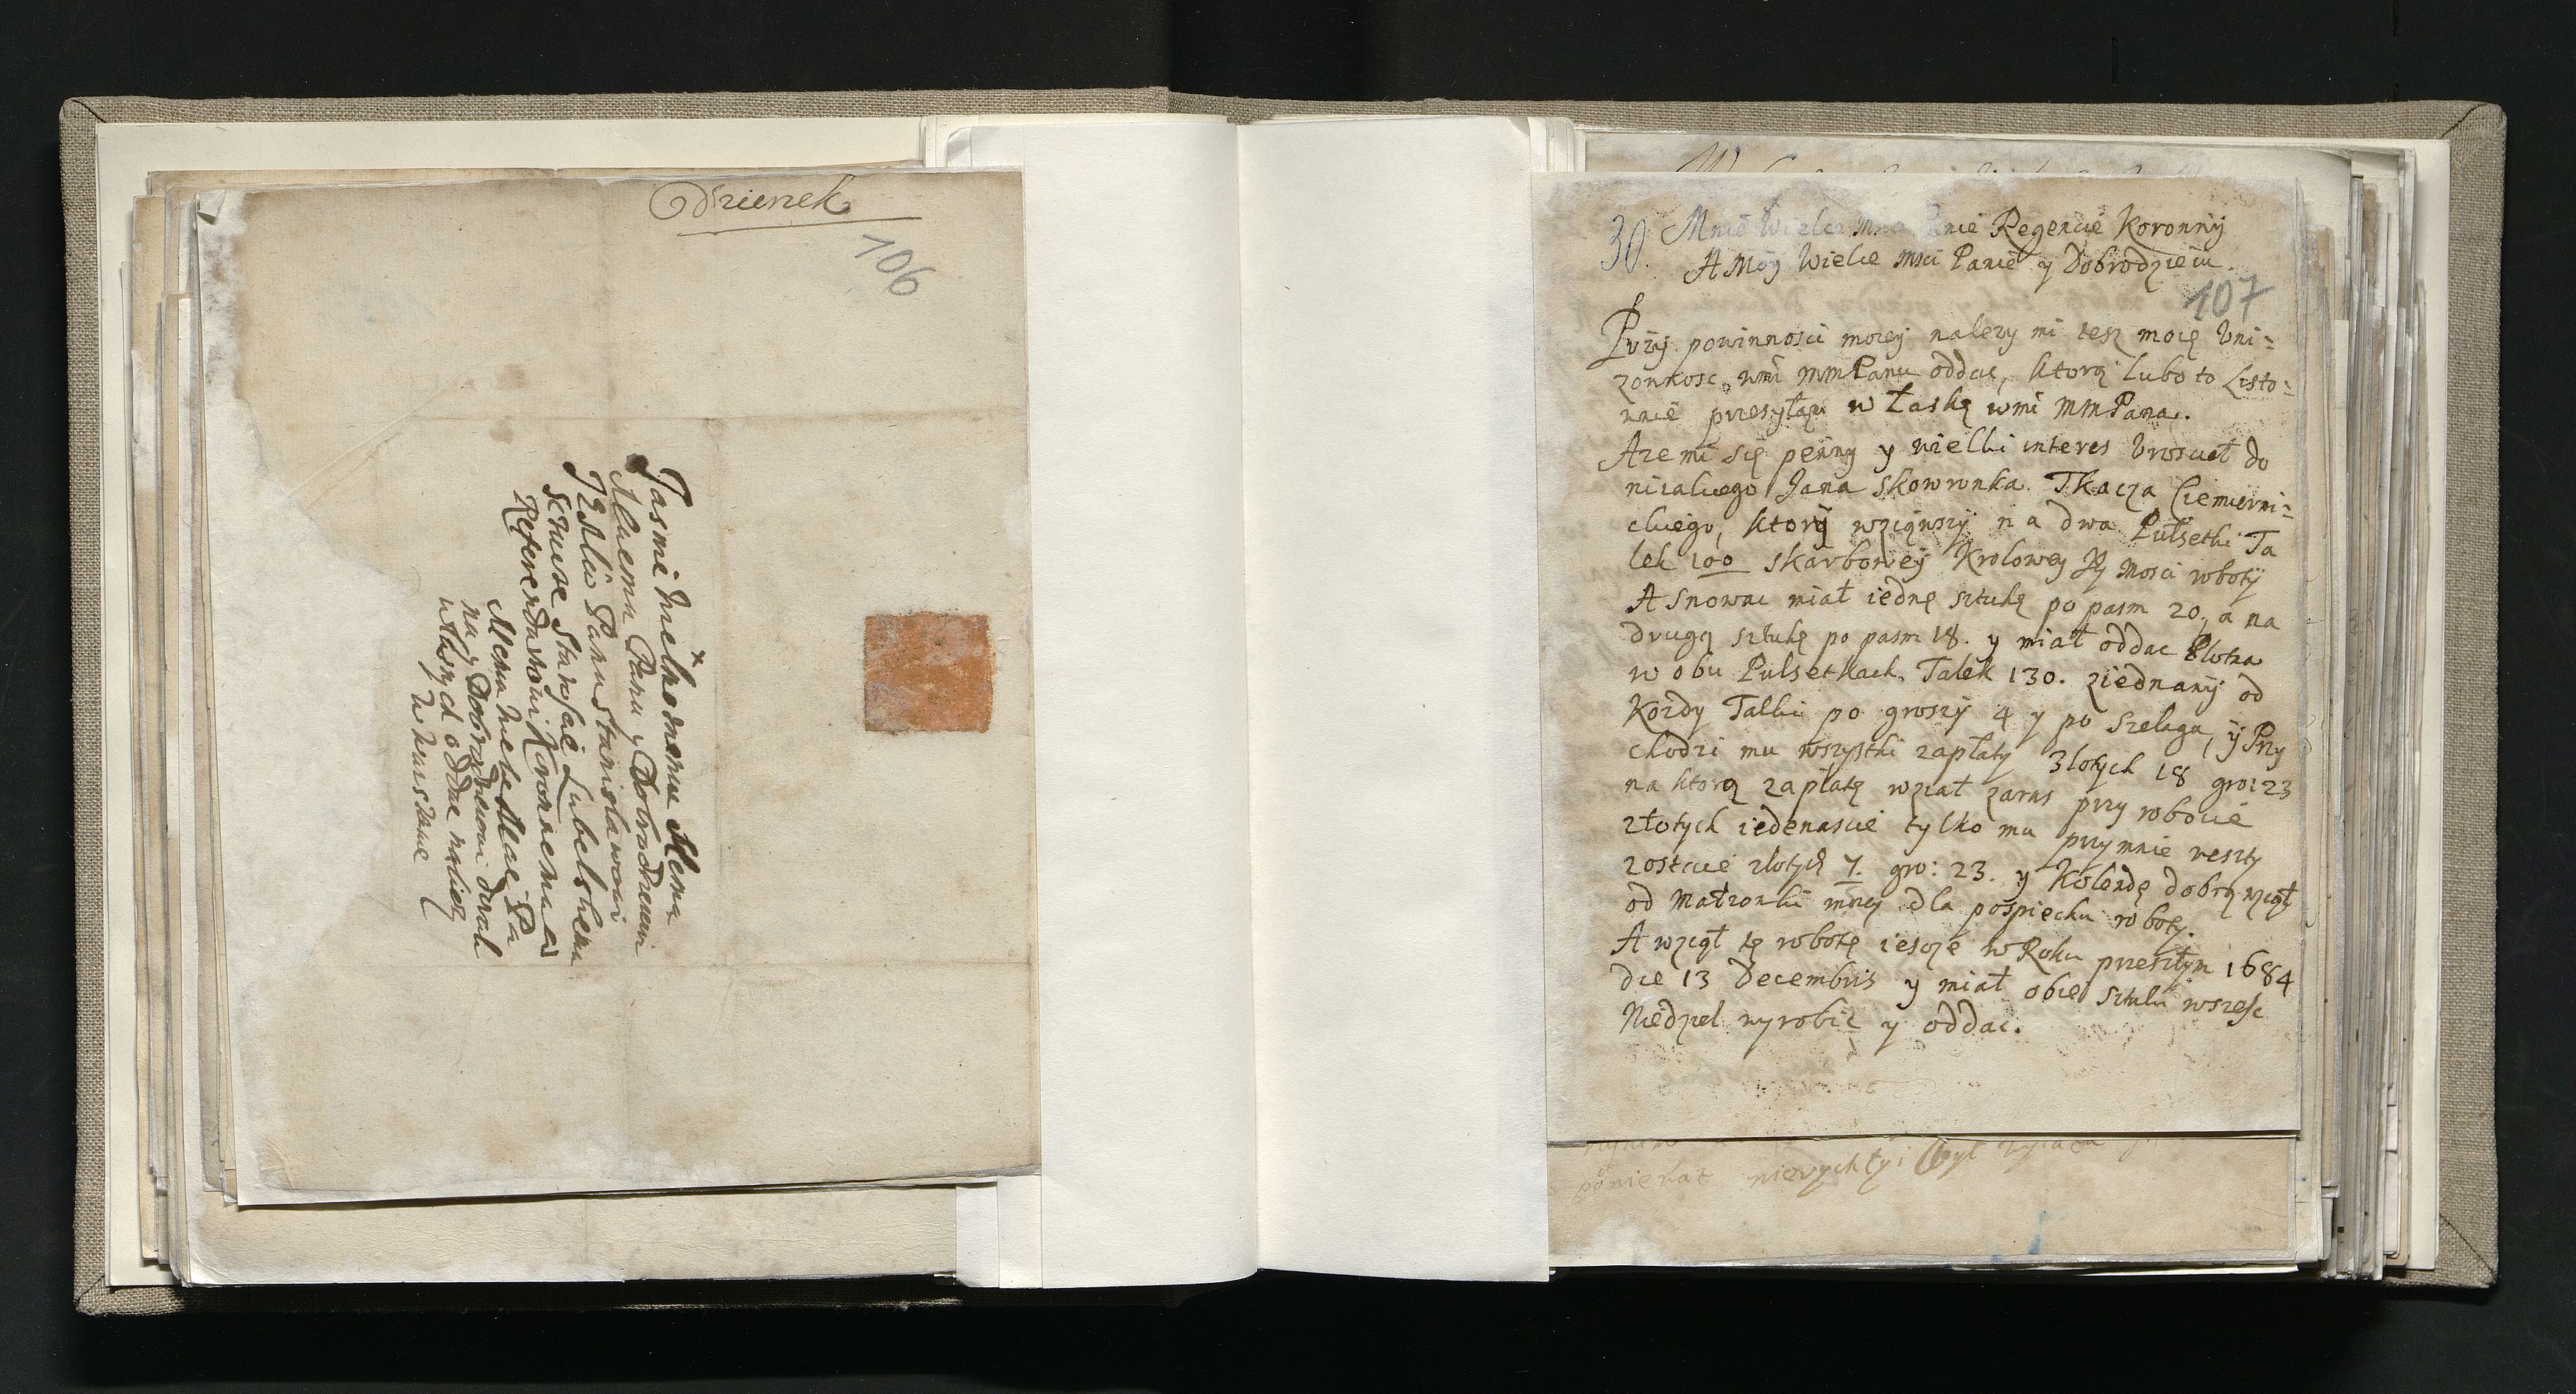 Dzienek
106
Jasnie Wielmoznemu Memu
Memu Panu y Dobrodzieiowi
JEMci Panu Stanisławowi
Staroscie Lubelskiemu
Referendarzowi Koronnemu
Memu Wielce Msci Pa
nu y Dobrodzieiowi do rąk
własnych oddac nalezy
w Warszawie
30. Mnie Wielce Panie Regencie Koronny
A Moy Wielce Msci Panie y Dobrodzieiu.
107
Przy powinnosci moiey nalezy mi tesz moię Vni=
zonnosc wmi MMPanu oddac, ktorą lubo to Listo=
wnie przesyłąm w Łaskę wmi MMPana.
Aze mi się pewny y wielki interes Vroscieł do
nieiakiego Jana Skowronka Tkacza Ciemierni=
ckiego, ktory wziąwszy na dwa Pułsetki Ta
lek 100 skarbowey Krolowey Jey Mosci roboty
A Snowac miał iednę sztukę po pasm 20, a na
drugą sztukę po pasm 18. y miał oddac Płotna
w obu Pulsetkach Talek 130. ziednany od
Kozdy Talki po groszy 4 y po szelągu, y Przy
chodzi mu wszystki zapłaty Złotych 18 gro: 23
na ktorą zapłatę wziął zaras przy robocie
złotych iedenascie tylko mu przy mnie reszty
zostaie zlotych 7. gro: 23. y Kolendę dobrą wziął
od Małzonki moiey dla pospiechu roboty.
A wziął tę robotę iescze w Roku przeszłym 1684
die 13 Decembris y miał obie sztuki w szesc
Niedziel wyrobic y oddac.
poniewaz nierychtyi był